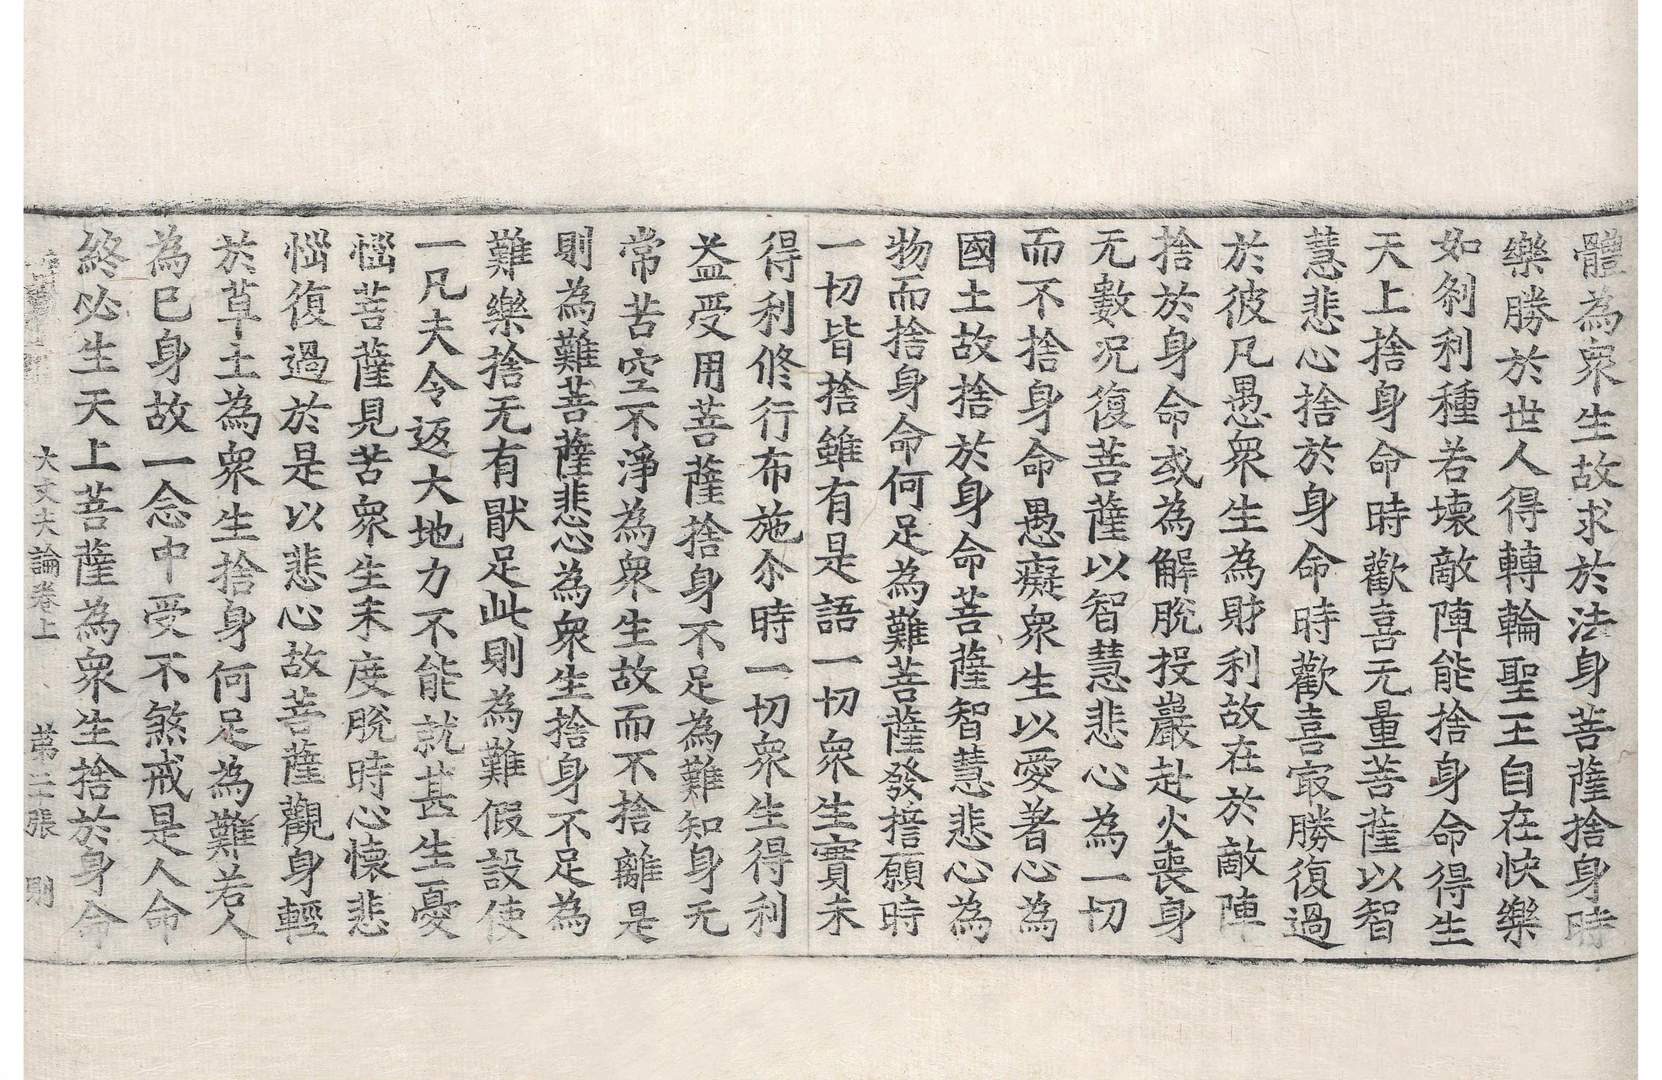 體為衆生故求於法身菩薩捨身時
樂勝於世人得轉輪聖王自在快樂
如剎利種若壞敵陣能捨身命得生
天上捨身命時歡喜无量菩薩以智
慧悲心捨於身命時歡喜㝡勝復過
於彼凡愚衆生為財利故在於敵陣
捨於身命或為解脫投巖赴火喪身
无數况復菩薩以智慧悲心為一切
而不捨身命愚癡衆生以愛著心為
國土故捨於身命菩薩智慧悲心為
物而捨身命何足為難菩薩發擔願時
一切皆捨雖有是語一切衆生實未
得利修行布施尒時一切衆生得利
益受用菩薩捨身不足為難知身无
常苦空不淨為衆生故而不捨離是
則為難菩薩悲心為衆生捨身不足為
難樂捨无有猒足此則為難假設使
一凡夫令返大地力不能就甚生憂
惱菩薩見苦衆生未度脫時心懷悲
惱復過於是以悲心故菩薩觀身輕
於草土為衆生捨身何足為難若人
為巳身故一念中受不煞戒是人命
終必生天上菩薩為衆生捨於身命
大丈夫論卷上　第二十張　則